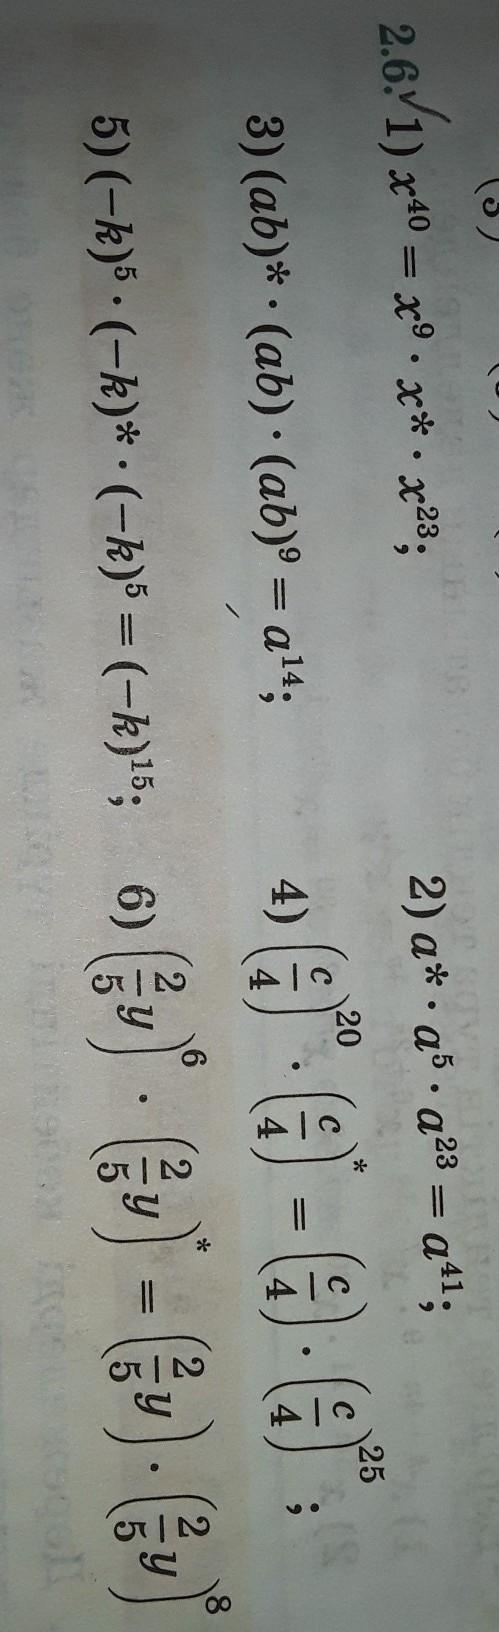 2.6.✓ 1) x⁴⁰ = x⁹ · x* · x²³; 2) a* · a⁵ · a²³ = a⁴¹;
3) (ab)* · (ab) · (ab)⁹ = a¹⁴; 4) (c/4)²⁰ · (c/4)* = (c/4) · (c/4)²⁵;
5) (−k)⁵ · (−k)* · (−k)⁵ = (−k)¹⁵; 6) (2/5 y)⁶ · (2/5 y)* = (2/5 y) · (2/5 y)⁸